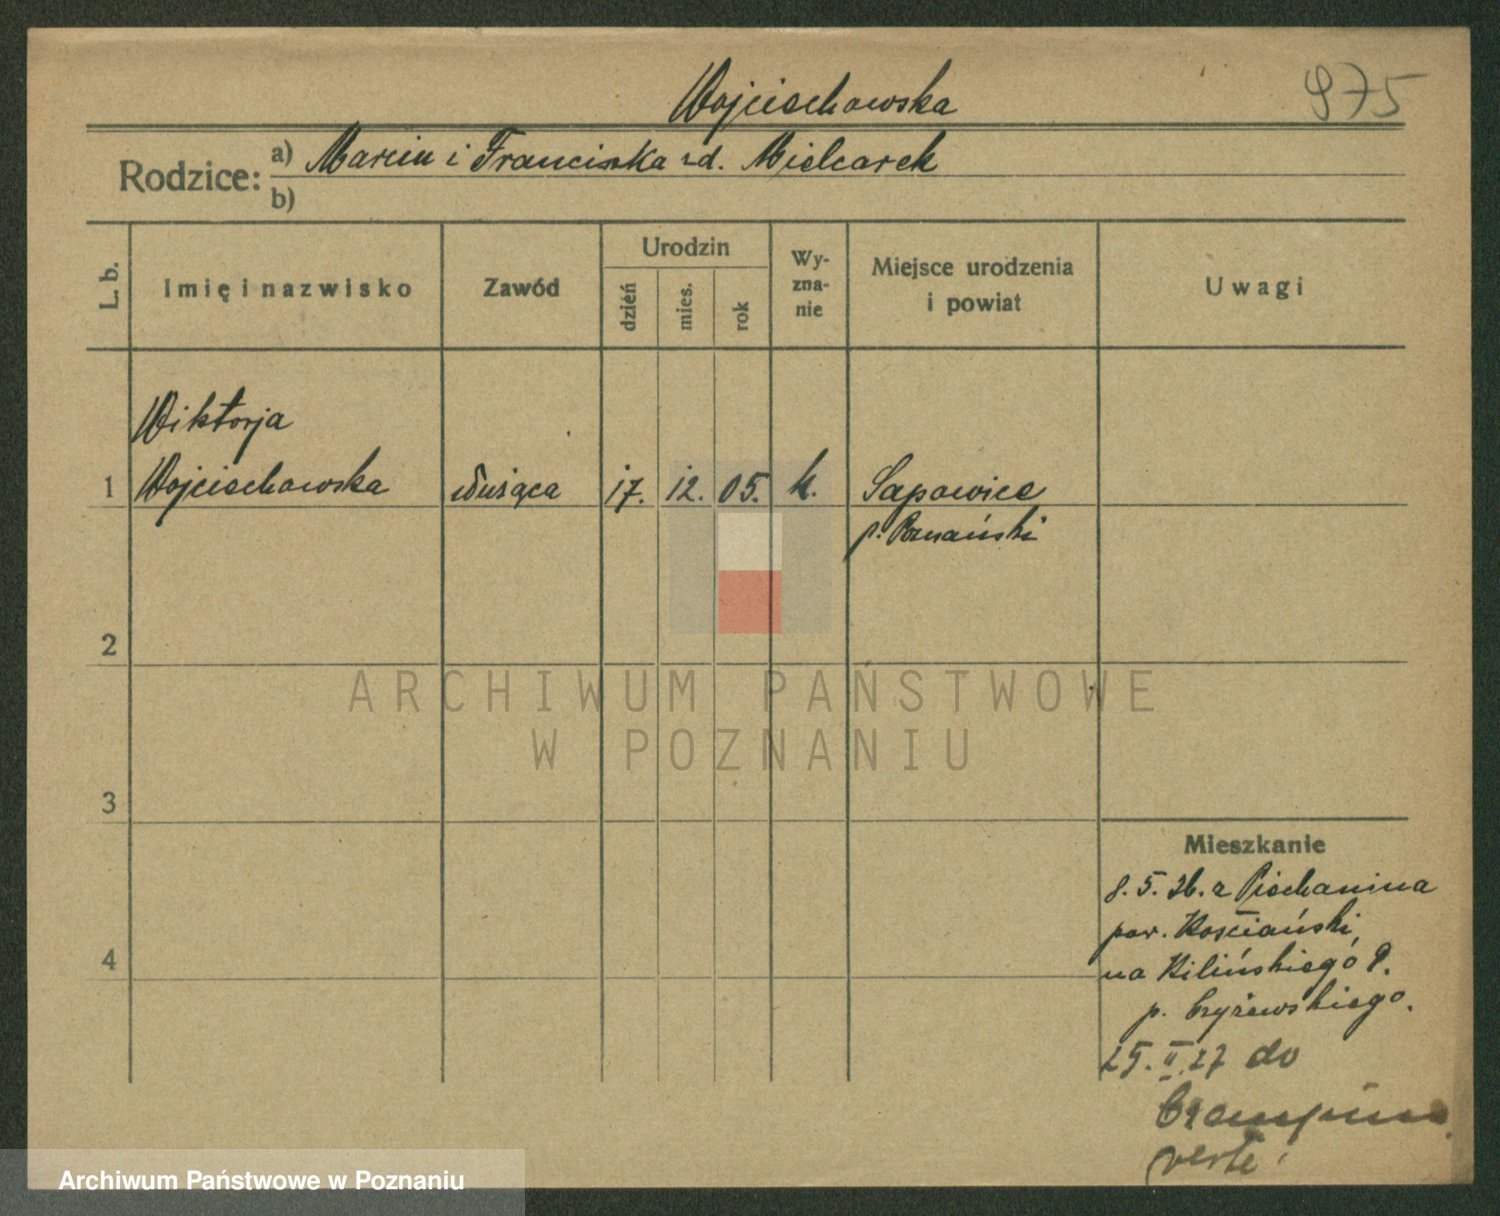 Wojciechowska
975
Rodzice: a) Marcin i Franciszka zd. Mielcarek
b)
L. b.
Imię i nazwisko
Zawód
Urodzin
dzień
mies.
rok
Wy-
zna-
nie
Miejsce urodzenia
i powiat
Uwagi
Wiktorja
1 Wojciechowska służąca 17. 12. 05. k. Sapowice
p. Poznański
2
ARCHIWUM PAŃSTWOWE
W POZNANIU
3
Mieszkanie
8. 5. 26. z Piechanina
pow. Kościański,
4
na Kilińskiego 9.
p. Czyżewskiego.
25. II. 27 do
Czempinia
verte!
Archiwum Państwowe w Poznaniu